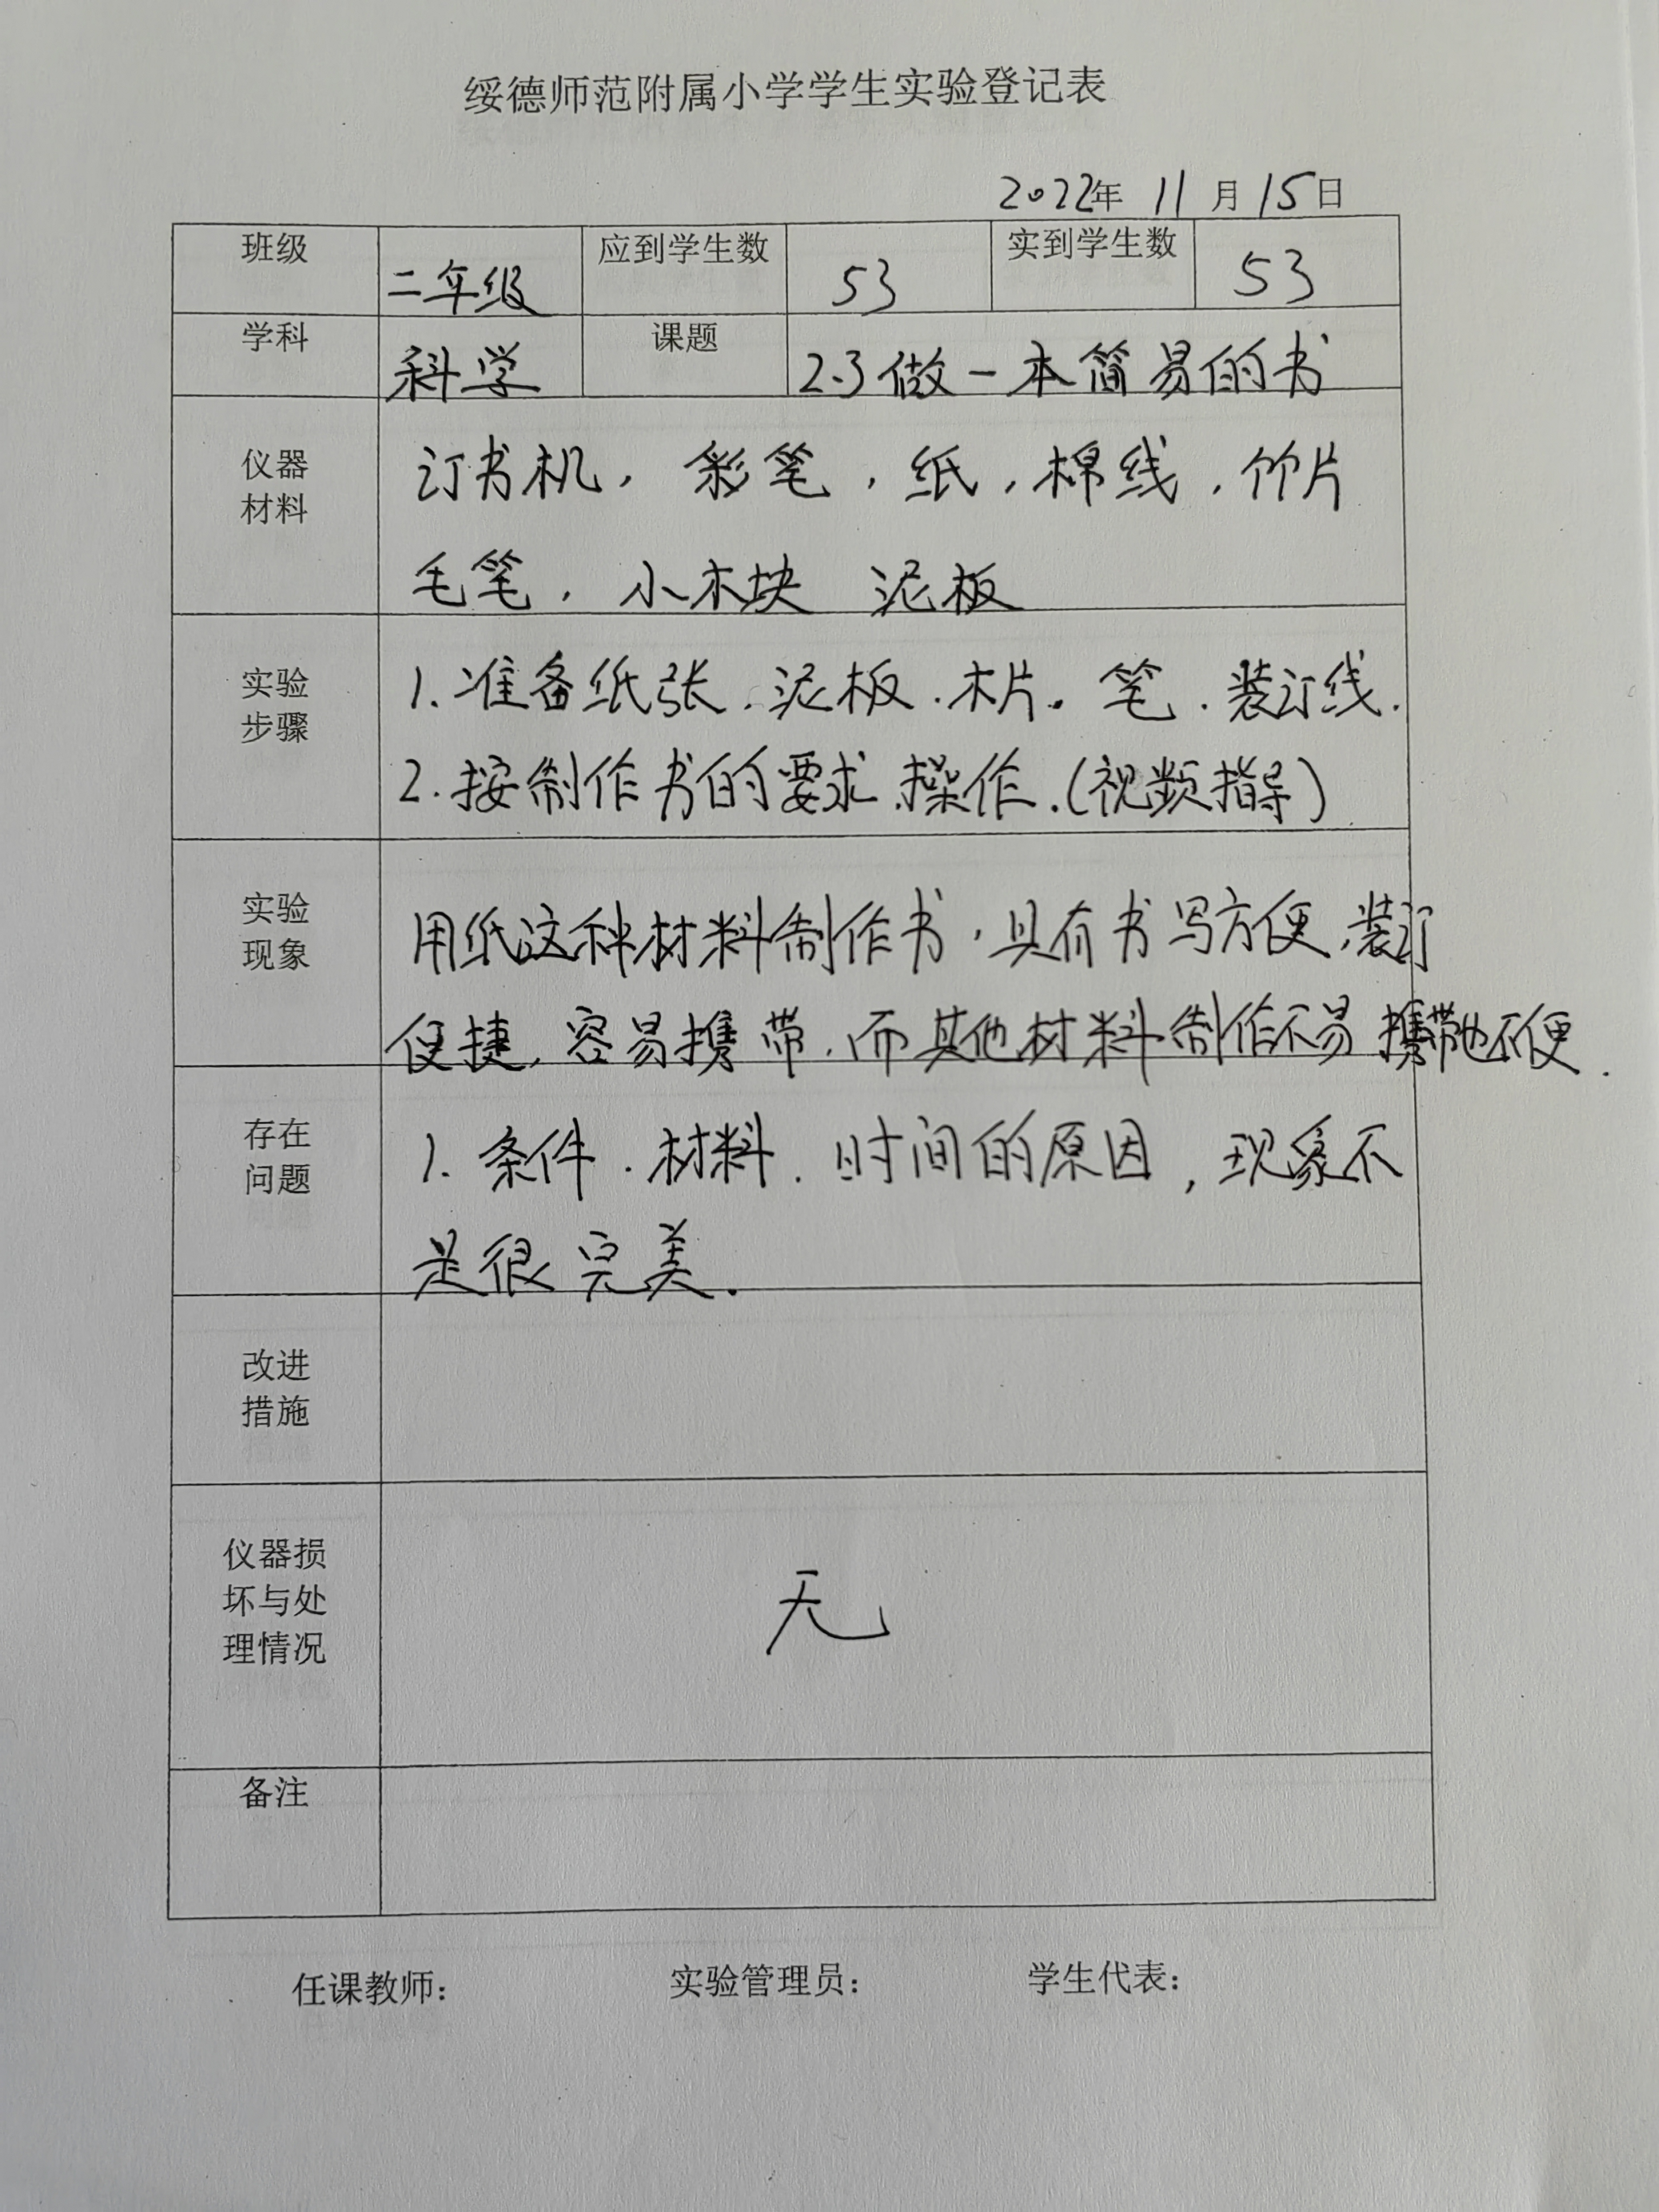 绥德师范附属小学学生实验登记表
2022年 11 月 15日
班级 二年级 应到学生数 53 实到学生数 53
学科 科学 课题 2.3做一本简易的书
仪器
材料
订书机, 彩笔, 纸, 棉线, 竹片
毛笔, 小木块 泥板
实验
步骤
1. 准备纸张、泥板、木片. 笔、装订线.
2. 按制作书的要求、操作.(视频指导)
实验
现象
用纸这种材料制作书, 具有书写方便、装订
便捷, 容易携带. 而其他材料制作不易携带也不便.
存在
问题
1. 条件. 材料. 时间的原因, 现象不
是很完美.
改进
措施
仪器损
坏与处
理情况
无
备注
任课教师: 实验管理员: 学生代表: